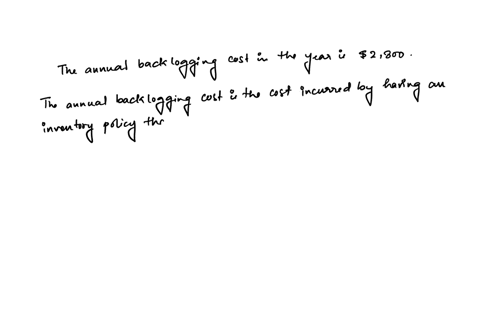 The annual backlogging cost in the year is $2,800.
The annual backlogging cost is the cost incurred by having an
inventory policy tha